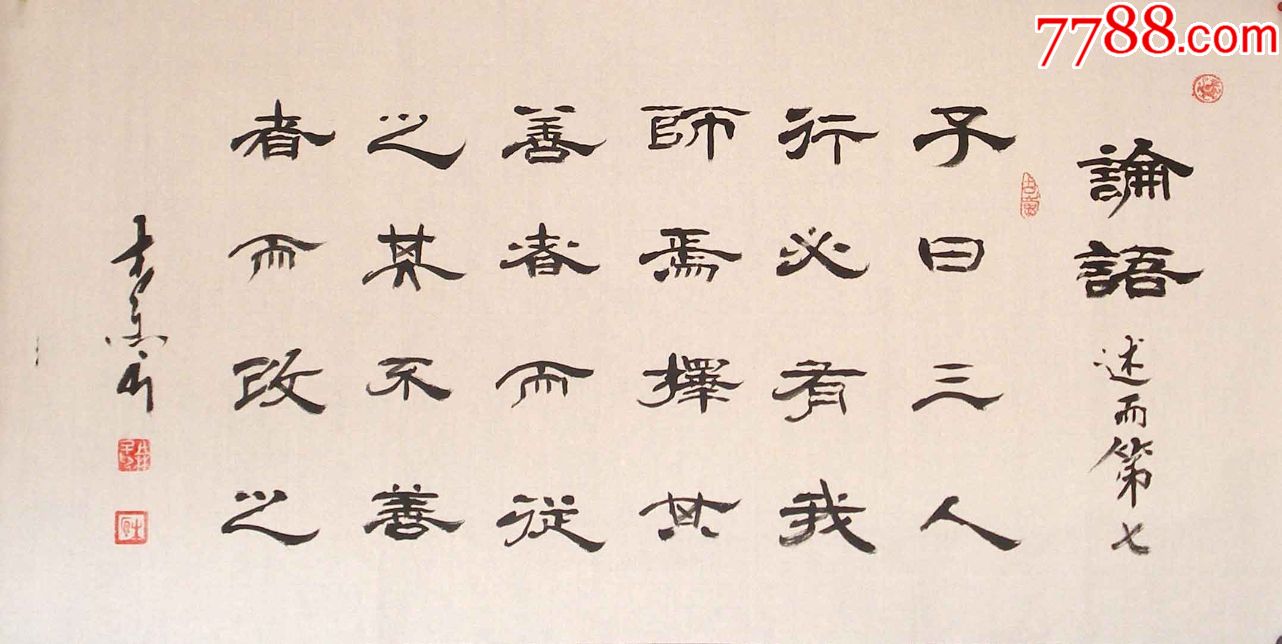 7788.com
論語 述而第七
子曰三人
行必有我
師焉擇其
善者而從
之其不善
者而改之